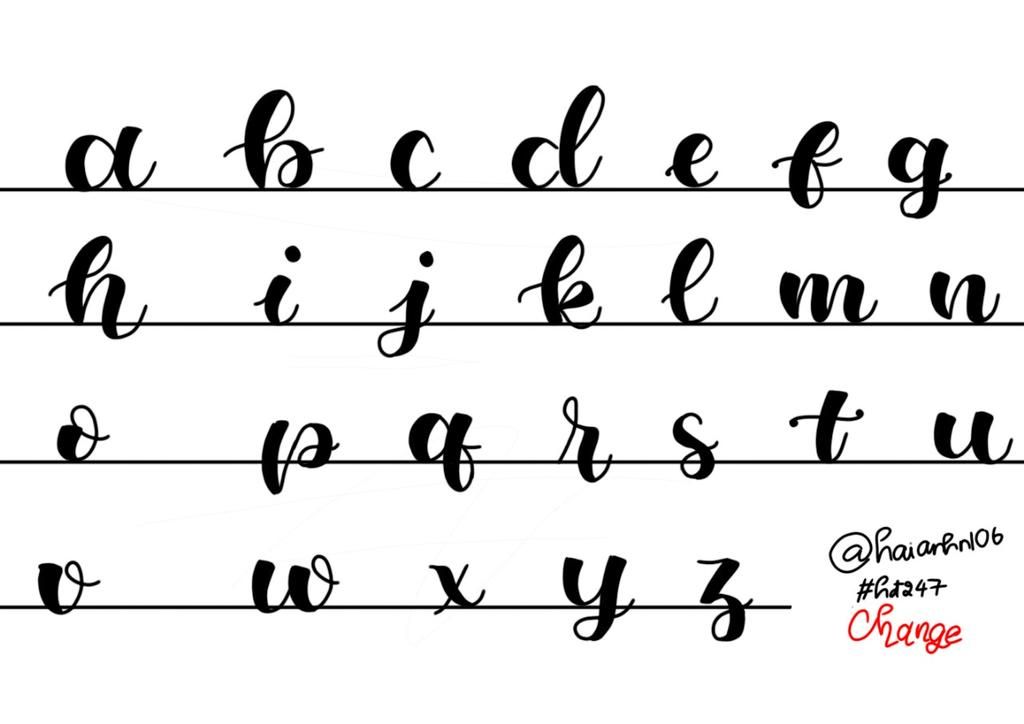 a b c d e f g
h i j k l m n
o p q r s t u
v w x y z
@haianhn106
#hd247
Change